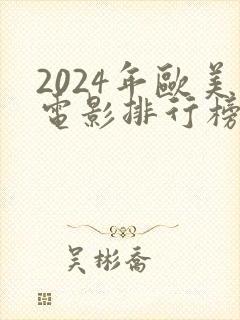 2024年歐美
電影排行榜
吴彬喬